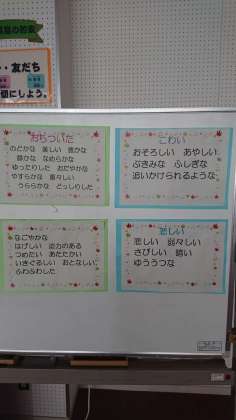 ・友だち
切にしよう。
おちついた
のどかな 美しい 豊かな
静かな なめらかな
ゆったりした おだやかな
やすらかな 重々しい
うららかな どっしりした
こわい
おそろしい あやしい
ぶきみな ふしぎな
追いかけられるような
なごやかな
はげしい 迫力のある
つめたい あたたかい
いきぐるしい おとなしい
ふわふわした
悲しい
悲しい 弱々しい
さびしい 暗い
ゆううつな